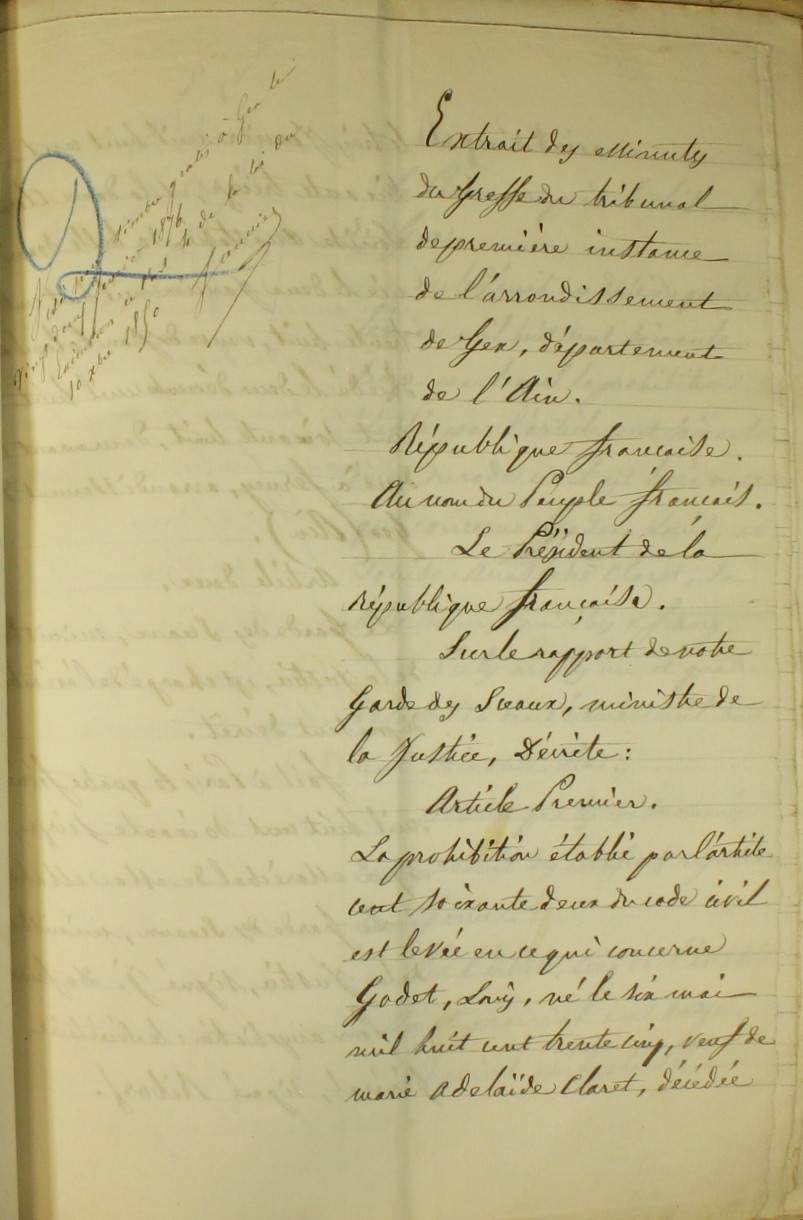 Visé pour timbre gratis à Gex le
vingt deux janvier 1876
Exécution de l'art. 4 de la loi du
10 xbre 1850
Extrait des Minutes
du Greffe du tribunal
de première instance
de l'arrondissement
de Gex, département
de l'Ain.
République française.
Au nom du Peuple français.
Le Président de la
République française.
Sur le rapport de notre
Garde des Sceaux, ministre de
la Justice, Décrète :
Article Premier.
La prohibition établie par l'article
cent soixante deux du code civil
est levée en ce qui concerne
Godet, Louis, né le six mai
mil huit cent trente cinq, veuf de
marie Adelaïde Claret, décédée